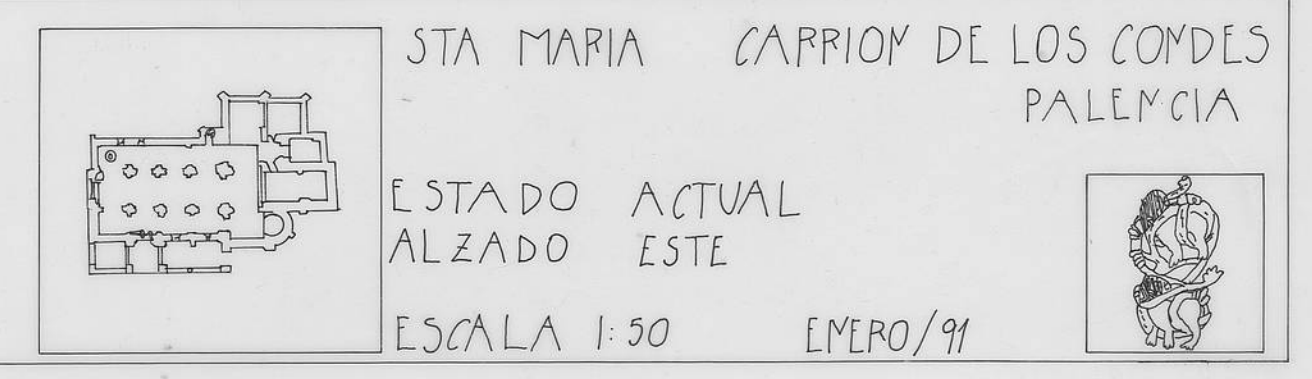 STA MARIA CARRION DE LOS CONDES
PALENCIA
ESTADO ACTUAL
ALZADO ESTE
ESCALA 1:50 ENERO/91